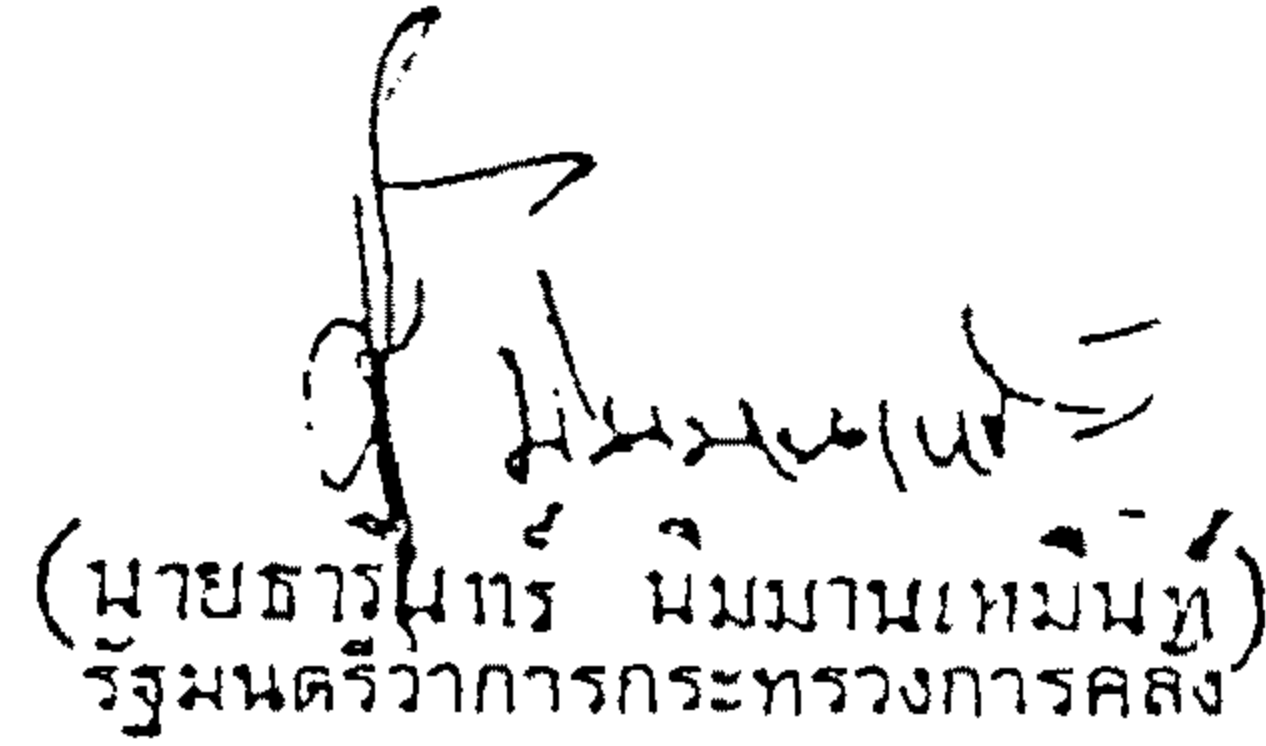 (นายธารินทร์ นิมมานเหมินท์)
รัฐมนตรีว่าการกระทรวงการคลัง